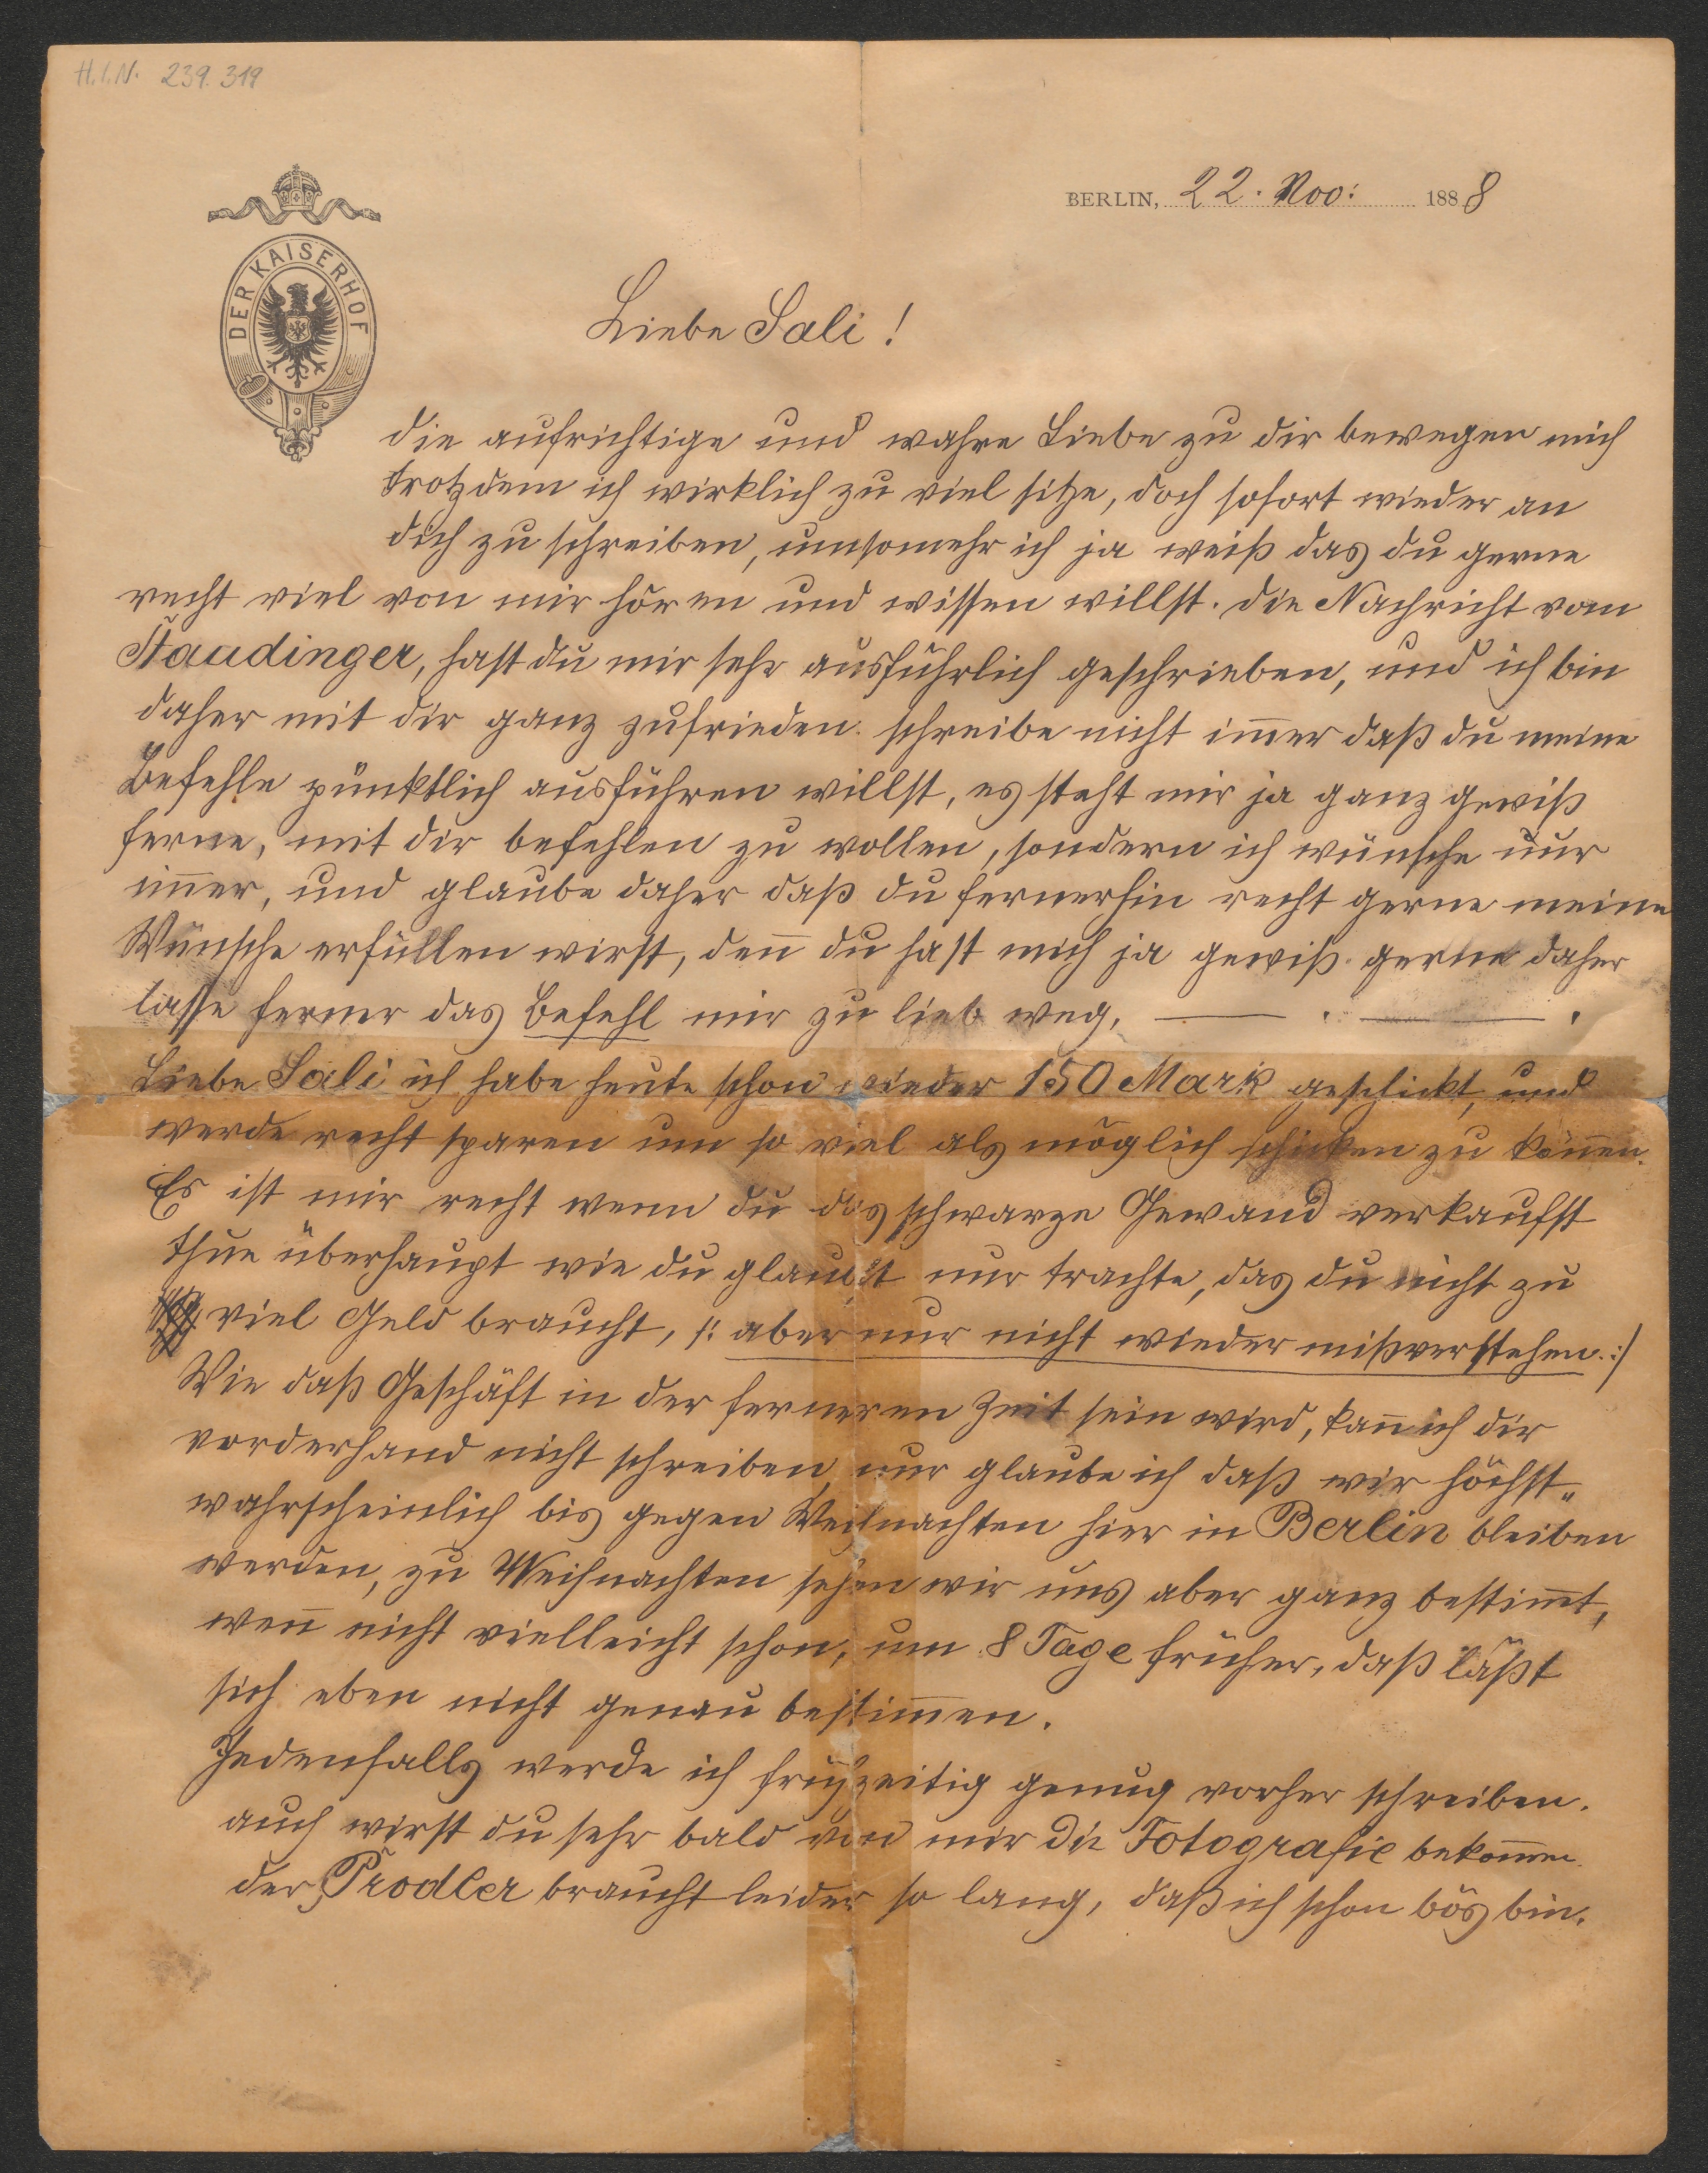 H.I.N. 239.319
BERLIN, 22. Nov: 1888
DER KAISERHOF
Liebe Sali!
die aufrichtige und wahre Liebe zu dir bewegen mich
trotzdem ich wirklich zu viel sitze, doch sofort wieder an
dich zu schreiben, umsomehr ich ja weiß das du gerne
recht viel von mir hören und wissen willst. die Nachricht vom
Staudinger, hast du mir sehr ausführlich geschrieben, und ich bin
daher mit dir ganz zufrieden. schreibe nicht im̄er daß du meine
Befehle pünktlich ausführen willst, es steht mir ja ganz gewiß
ferne, mit dir befehlen zu wollen, sondern ich wünsche nur
im̄er, und glaube daher daß du fernerhin recht gerne meine
Wünsche erfüllen wirst, den̄ du hast mich ja gewiß gerne daher
lasse ferner das Befehl mir zu lieb weg.
Liebe Sali ich habe heute schon wieder 150 Mark geschickt, und
werde recht sparen um so viel als möglich schicken zu kön̄en.
Es ist mir recht wenn du das schwarze Gewand verkaufst
thue überhaupt wie du glaubst nur trachte, das du nicht zu
viel Geld braucht, /: aber nur nicht wieder mißverstehen. :/
Wie daß Geschäft in der ferneren Zeit sein wird, kan̄ ich dir
vorderhand nicht schreiben, nur glaube ich daß wir höchst„
wahrscheinlich bis gegen Weihnachten hier in Berlin bleiben
werden, zu Weihnachten sehen wir uns aber ganz bestim̄t,
wen̄ nicht vielleicht schon, um 8 Tage früher, daß läßt
sich eben nicht genau bestim̄en.
Jedenfalls werde ich frühzeitig genug vorher schreiben.
auch wirst du sehr bald von mir die Fotografie bekom̄en
der Prodler braucht leider so lang, daß ich schon bös bin.